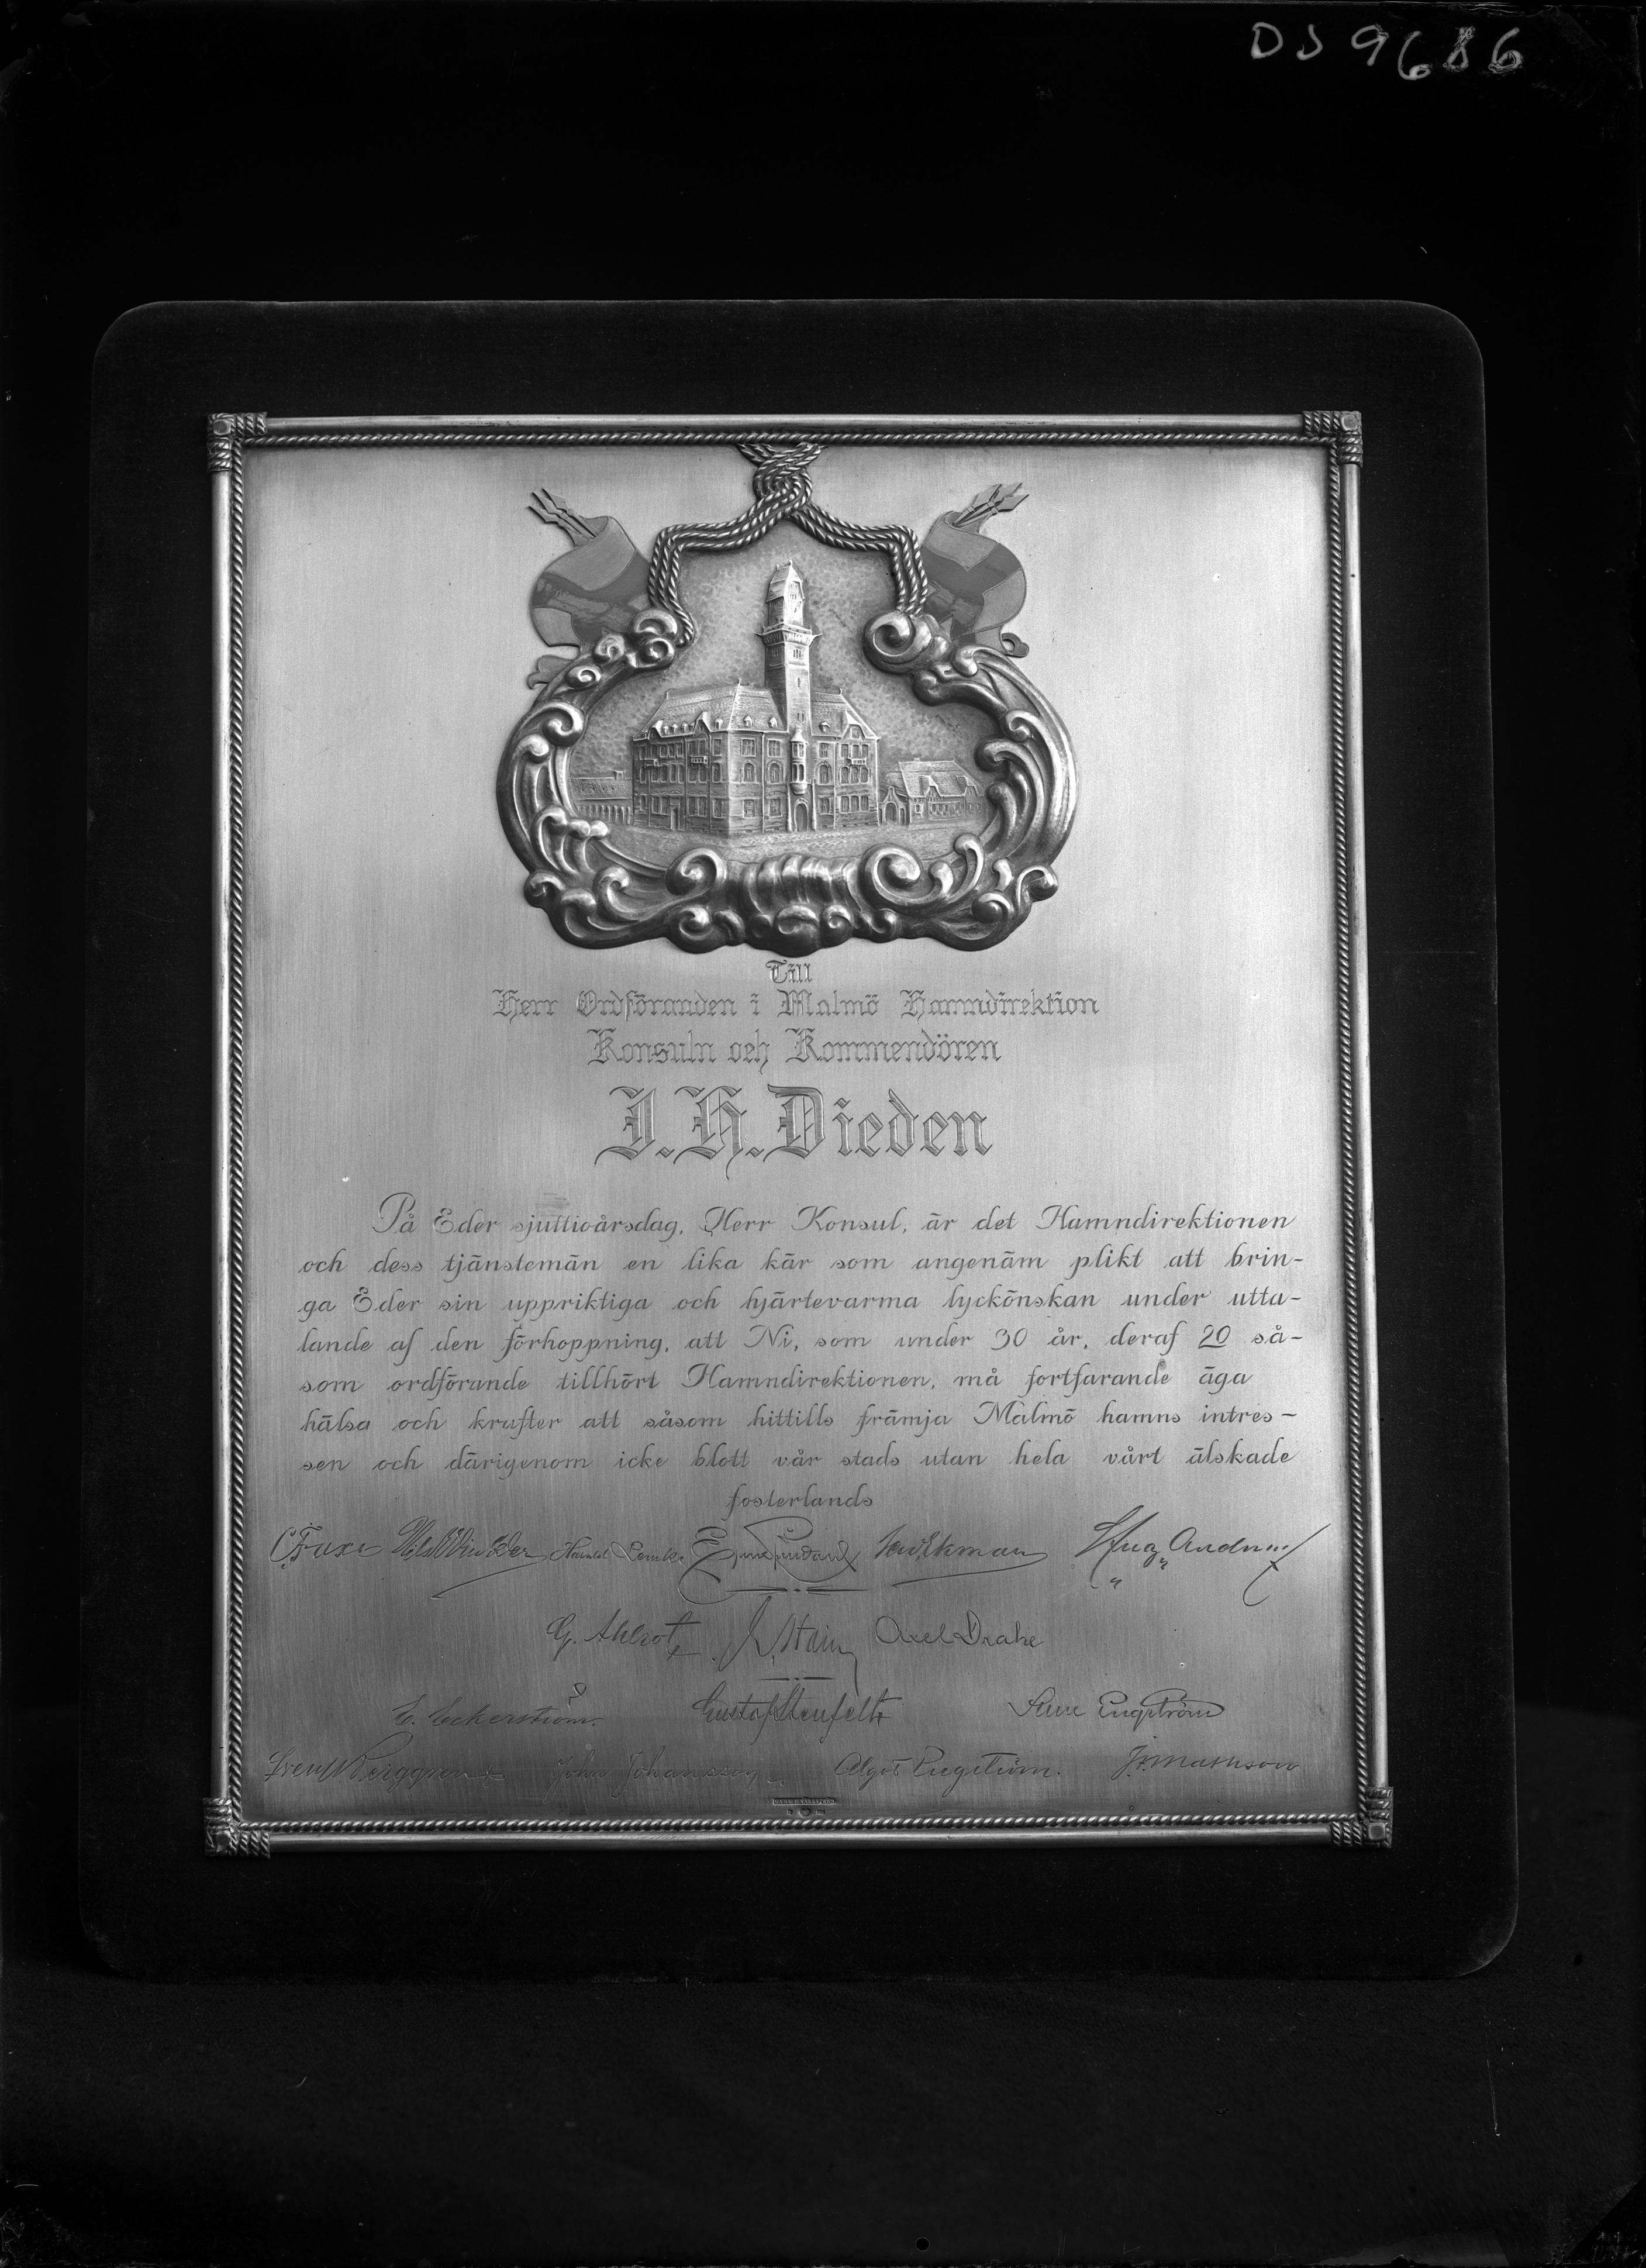 DS 9686
Till
Herr Ordföranden i Malmö Hamndirektion
Konsuln och Kommendören
J.H.Dieden
På Eder sjuttioårsdag, Herr Konsul, är det Hamndirektionen
och dess tjänstemän en lika kär som angenäm plikt att brin-
ga Eder sin uppriktiga och hjärtevarma lyckönskan under utta-
lande af den förhoppning, att Ni, som under 30 år, deraf 20 så-
som ordförande tillhört Hamndirektionen, må fortfarande äga
hälsa och krafter att såsom hittills främja Malmö hamns intres-
sen och därigenom icke blott vår stads utan hela vårt älskade
fosterlands
Faxe Nils Winkler Harald Ekman
G. Ahlrot Axel Drake
E. Eckerström Gustaf Stenfelt Engström
Berggren John Johansson Algot Engström.